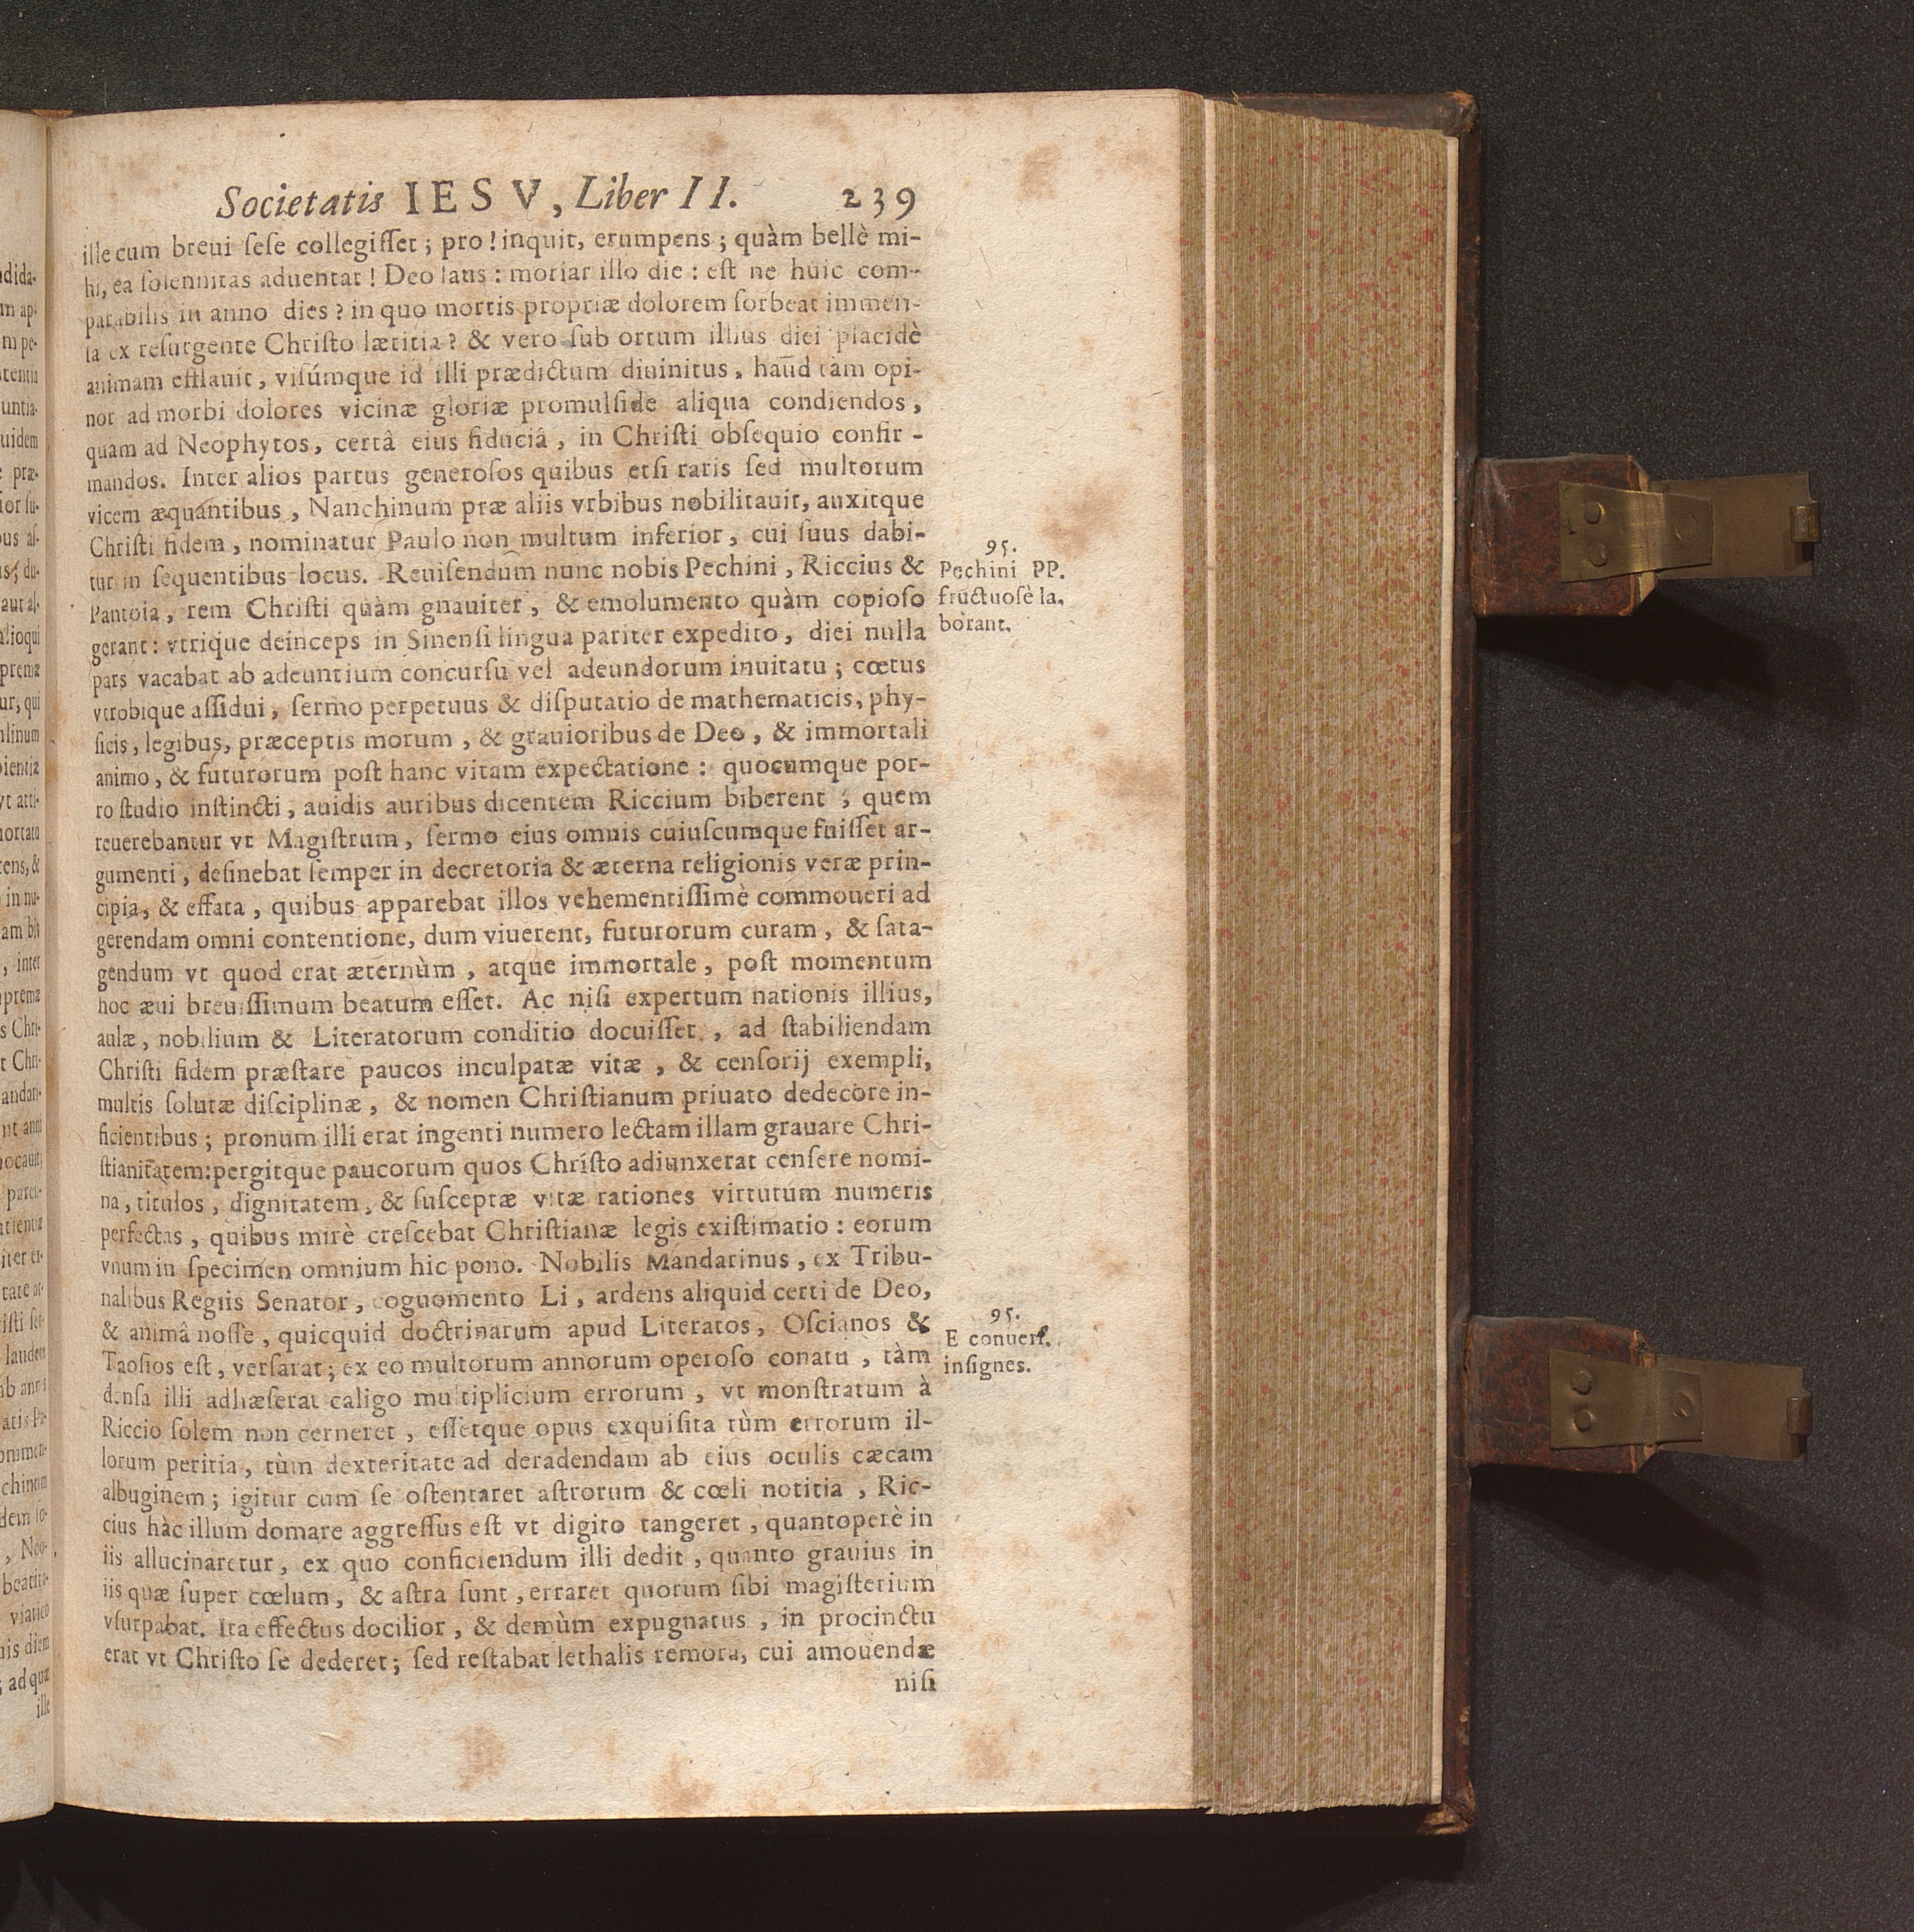 Societatis IESV, Liber II. 239
ille cum breui ſeſe collegiſſet; pro! inquit, erumpens; quàm bellè mi-
hi, ea ſolennitas aduentat! Deo laus: moriar illo die: eſt ne huic com-
parabilis in anno dies? in quo mortis propriæ dolorem ſorbeat immen-
ſa ex reſurgente Chriſto lætitia? & vero ſub ortum illius diei placidè
animam efflauit, viſúmque id illi prædictum diuinitus, haud tàm opi-
nor ad morbi dolores vicinæ gloriæ promulſide aliqua condiendos,
quam ad Neophytos, certâ eius fiduciâ, in Chriſti obſequio confir-
mandos. Inter alios partus generoſos quibus etſi raris ſed multorum
vicem æquantibus, Nanchinum præ aliis vrbibus nobilitauit, auxitque
Chriſti fidem, nominatur Paulo non multum inferior, cui ſuus dabi-
tur in ſequentibus locus. Reuiſendum nunc nobis Pechini, Riccius &
Pantoia, rem Chriſti quàm gnauiter, & emolumento quàm copioſo
gerant: vtrique deinceps in Sinenſi lingua pariter expedito, diei nulla
pars vacabat ab adeuntium concurſu vel adeundorum inuitatu; cœtus
vtrobique aſſidui, ſermo perpetuus & diſputatio de mathematicis, phy-
ſicis, legibus, præceptis morum, & grauioribus de Deo, & immortali
animo, & futurorum poſt hanc vitam expectatione: quocumque por-
ro ſtudio inſtincti, auidis auribus dicentem Riccium biberent; quem
reuerebantur vt Magiſtrum, ſermo eius omnis cuiuſcumque fuiſſet ar-
gumenti, deſinebat ſemper in decretoria & æterna religionis veræ prin-
cipia, & effata, quibus apparebat illos vehementiſſimè commoueri ad
gerendam omni contentione, dum viuerent, futurorum curam, & ſata-
gendum vt quod erat æternùm, atque immortale, poſt momentum
hoc æui breuiſſimum beatum eſſet. Ac niſi expertum nationis illius,
aulæ, nobilium & Literatorum conditio docuiſſet, ad ſtabiliendam
Chriſti fidem præſtare paucos inculpatæ vitæ, & cenſorij exempli,
multis ſolutæ diſciplinæ, & nomen Chriſtianum priuato dedecore in-
ficientibus; pronum illi erat ingenti numero lectam illam grauare Chri-
ſtianitatem: pergitque paucorum quos Chriſto adiunxerat cenſere nomi-
na, titulos, dignitatem, & ſuſceptæ vitæ rationes virtutum numeris
perfectas, quibus mirè creſcebat Chriſtianæ legis exiſtimatio: eorum
vnum in ſpecimen omnium hic pono. Nobilis Mandarinus, ex Tribu-
nalibus Regiis Senator, cognomento Li, ardens aliquid certi de Deo,
& animâ noſſe, quicquid doctrinarum apud Literatos, Oſcianos &
Taoſios eſt, verſarat; ex eo multorum annorum operoſo conatu, tàm
denſa illi adhæſerat caligo multiplicium errorum, vt monſtratum à
Riccio ſolem non cerneret, eſſetque opus exquiſita tùm errorum il-
lorum peritia, tùm dexteritate ad deradendam ab eius oculis cæcam
albuginem; igitur cum ſe oſtentaret aſtrorum & cœli notitia, Ric-
cius hàc illum domare aggreſſus eſt vt digito tangeret, quantoperè in
iis allucinaretur, ex quo conficiendum illi dedit, quanto grauius in
iis quæ ſuper cœlum, & aſtra ſunt, erraret quorum ſibi magiſterium
vſurpabat. Ita effectus docilior, & demùm expugnatus, in procinctu
erat vt Chriſto ſe dederet; ſed reſtabat lethalis remora, cui amouendæ
niſi
95.
Pechini PP.
fructuoſè la-
borant.
95.
E conuerſ.
inſignes.